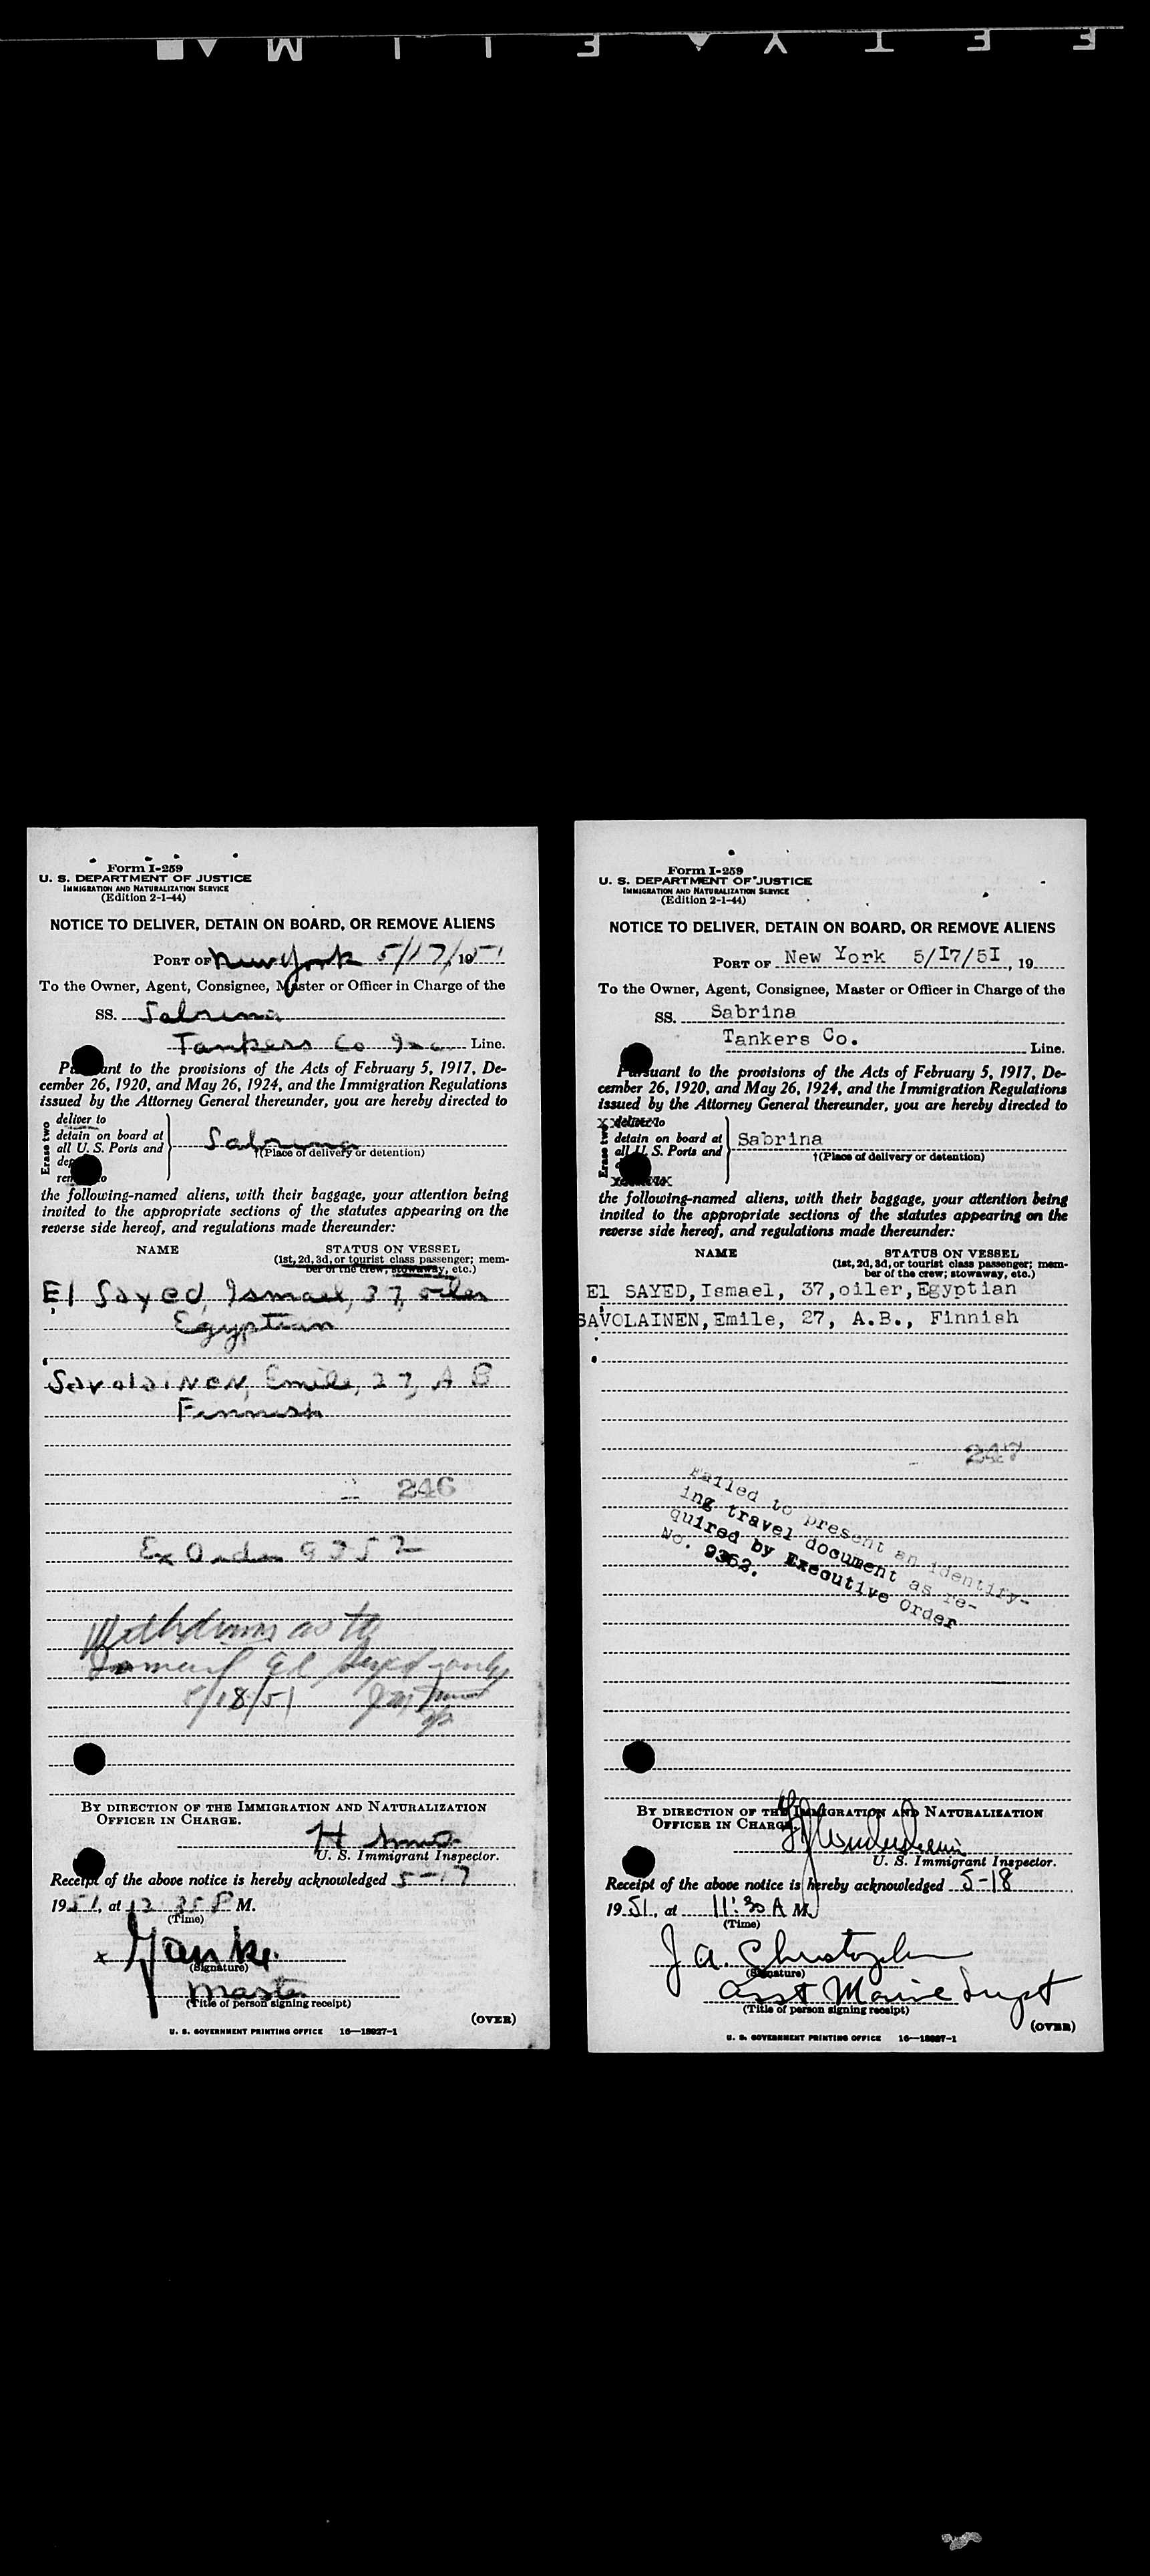 Form I-259
U. S. DEPARTMENT OF JUSTICE
IMMIGRATION AND NATURALIZATION SERVICE
(Edition 2-1-44)
NOTICE TO DELIVER, DETAIN ON BOARD, OR REMOVE ALIENS
PORT OF New York 5/17/, 1951
To the Owner, Agent, Consignee, Master or Officer in Charge of the
SS. Sabrina
Tankers Co Inc Line.
to the provisions of the Acts of February 5, 1917, De-
cember 26, 1920, and May 26, 1924, and the Immigration Regulations
issued by the Attorney General thereunder, you are hereby directed to
Erase two
deliver to
detain on board at
all U. S. Ports and
Sabrina
†(Place of delivery or detention)
the following-named aliens, with their baggage, your attention being
invited to the appropriate sections of the statutes appearing on the
reverse side hereof, and regulations made thereunder:
NAME STATUS ON VESSEL
(1st, 2d, 3d, or tourist class passenger; mem-
ber of the crew; stowaway, etc.)
El Sayed, Ismael, 37, oiler
Egyptian
Savolainen, Emile, 27, A B
Finnish
246
Ex Order 9352
Withdrawn as to
Ismael El Sayed only
5/18/51
BY DIRECTION OF THE IMMIGRATION AND NATURALIZATION
OFFICER IN CHARGE.
H
U. S. Immigrant Inspector.
Receipt of the above notice is hereby acknowledged 5-17
1951, at 12 35 P M.
(Time)
x
(Signature)
Master
(Title of person signing receipt)
(OVER)
U. S. GOVERNMENT PRINTING OFFICE 16—18927-1
Form I-259
U. S. DEPARTMENT OF JUSTICE
IMMIGRATION AND NATURALIZATION SERVICE
(Edition 2-1-44)
NOTICE TO DELIVER, DETAIN ON BOARD, OR REMOVE ALIENS
PORT OF New York 5/I7/5I, 19
To the Owner, Agent, Consignee, Master or Officer in Charge of the
SS. Sabrina
Tankers Co. Line.
Pursuant to the provisions of the Acts of February 5, 1917, De-
cember 26, 1920, and May 26, 1924, and the Immigration Regulations
issued by the Attorney General thereunder, you are hereby directed to
Erase two
deliver to
detain on board at
all U. S. Ports and
Sabrina
†(Place of delivery or detention)
the following-named aliens, with their baggage, your attention being
invited to the appropriate sections of the statutes appearing on the
reverse side hereof, and regulations made thereunder:
NAME STATUS ON VESSEL
(1st, 2d, 3d, or tourist class passenger; mem-
ber of the crew; stowaway, etc.)
El SAYED, Ismael, 37, oiler, Egyptian
SAVOLAINEN, Emile, 27, A.B., Finnish
247
Failed to present an identify-
ing travel document as re-
quired by Executive Order
No. 9352.
BY DIRECTION OF THE IMMIGRATION AND NATURALIZATION
OFFICER IN CHARGE.
U. S. Immigrant Inspector.
Receipt of the above notice is hereby acknowledged 5-18
1951, at 11:30 A M.
(Time)
J A. Christopher
(Signature)
Asst Marine Supt
(Title of person signing receipt)
(OVER)
U. S. GOVERNMENT PRINTING OFFICE 16—18927-1